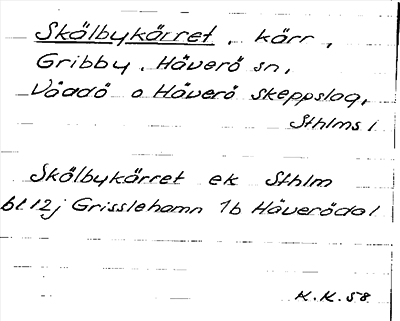 Skälbykärret, kärr,
Gribby, Häverö sn,
Väddö o Häverö skeppslag,
Sthlms l
Skälbykärret ek Sthlm
bl 12j Grisslehamn 1b Häverödal
K.K. 58